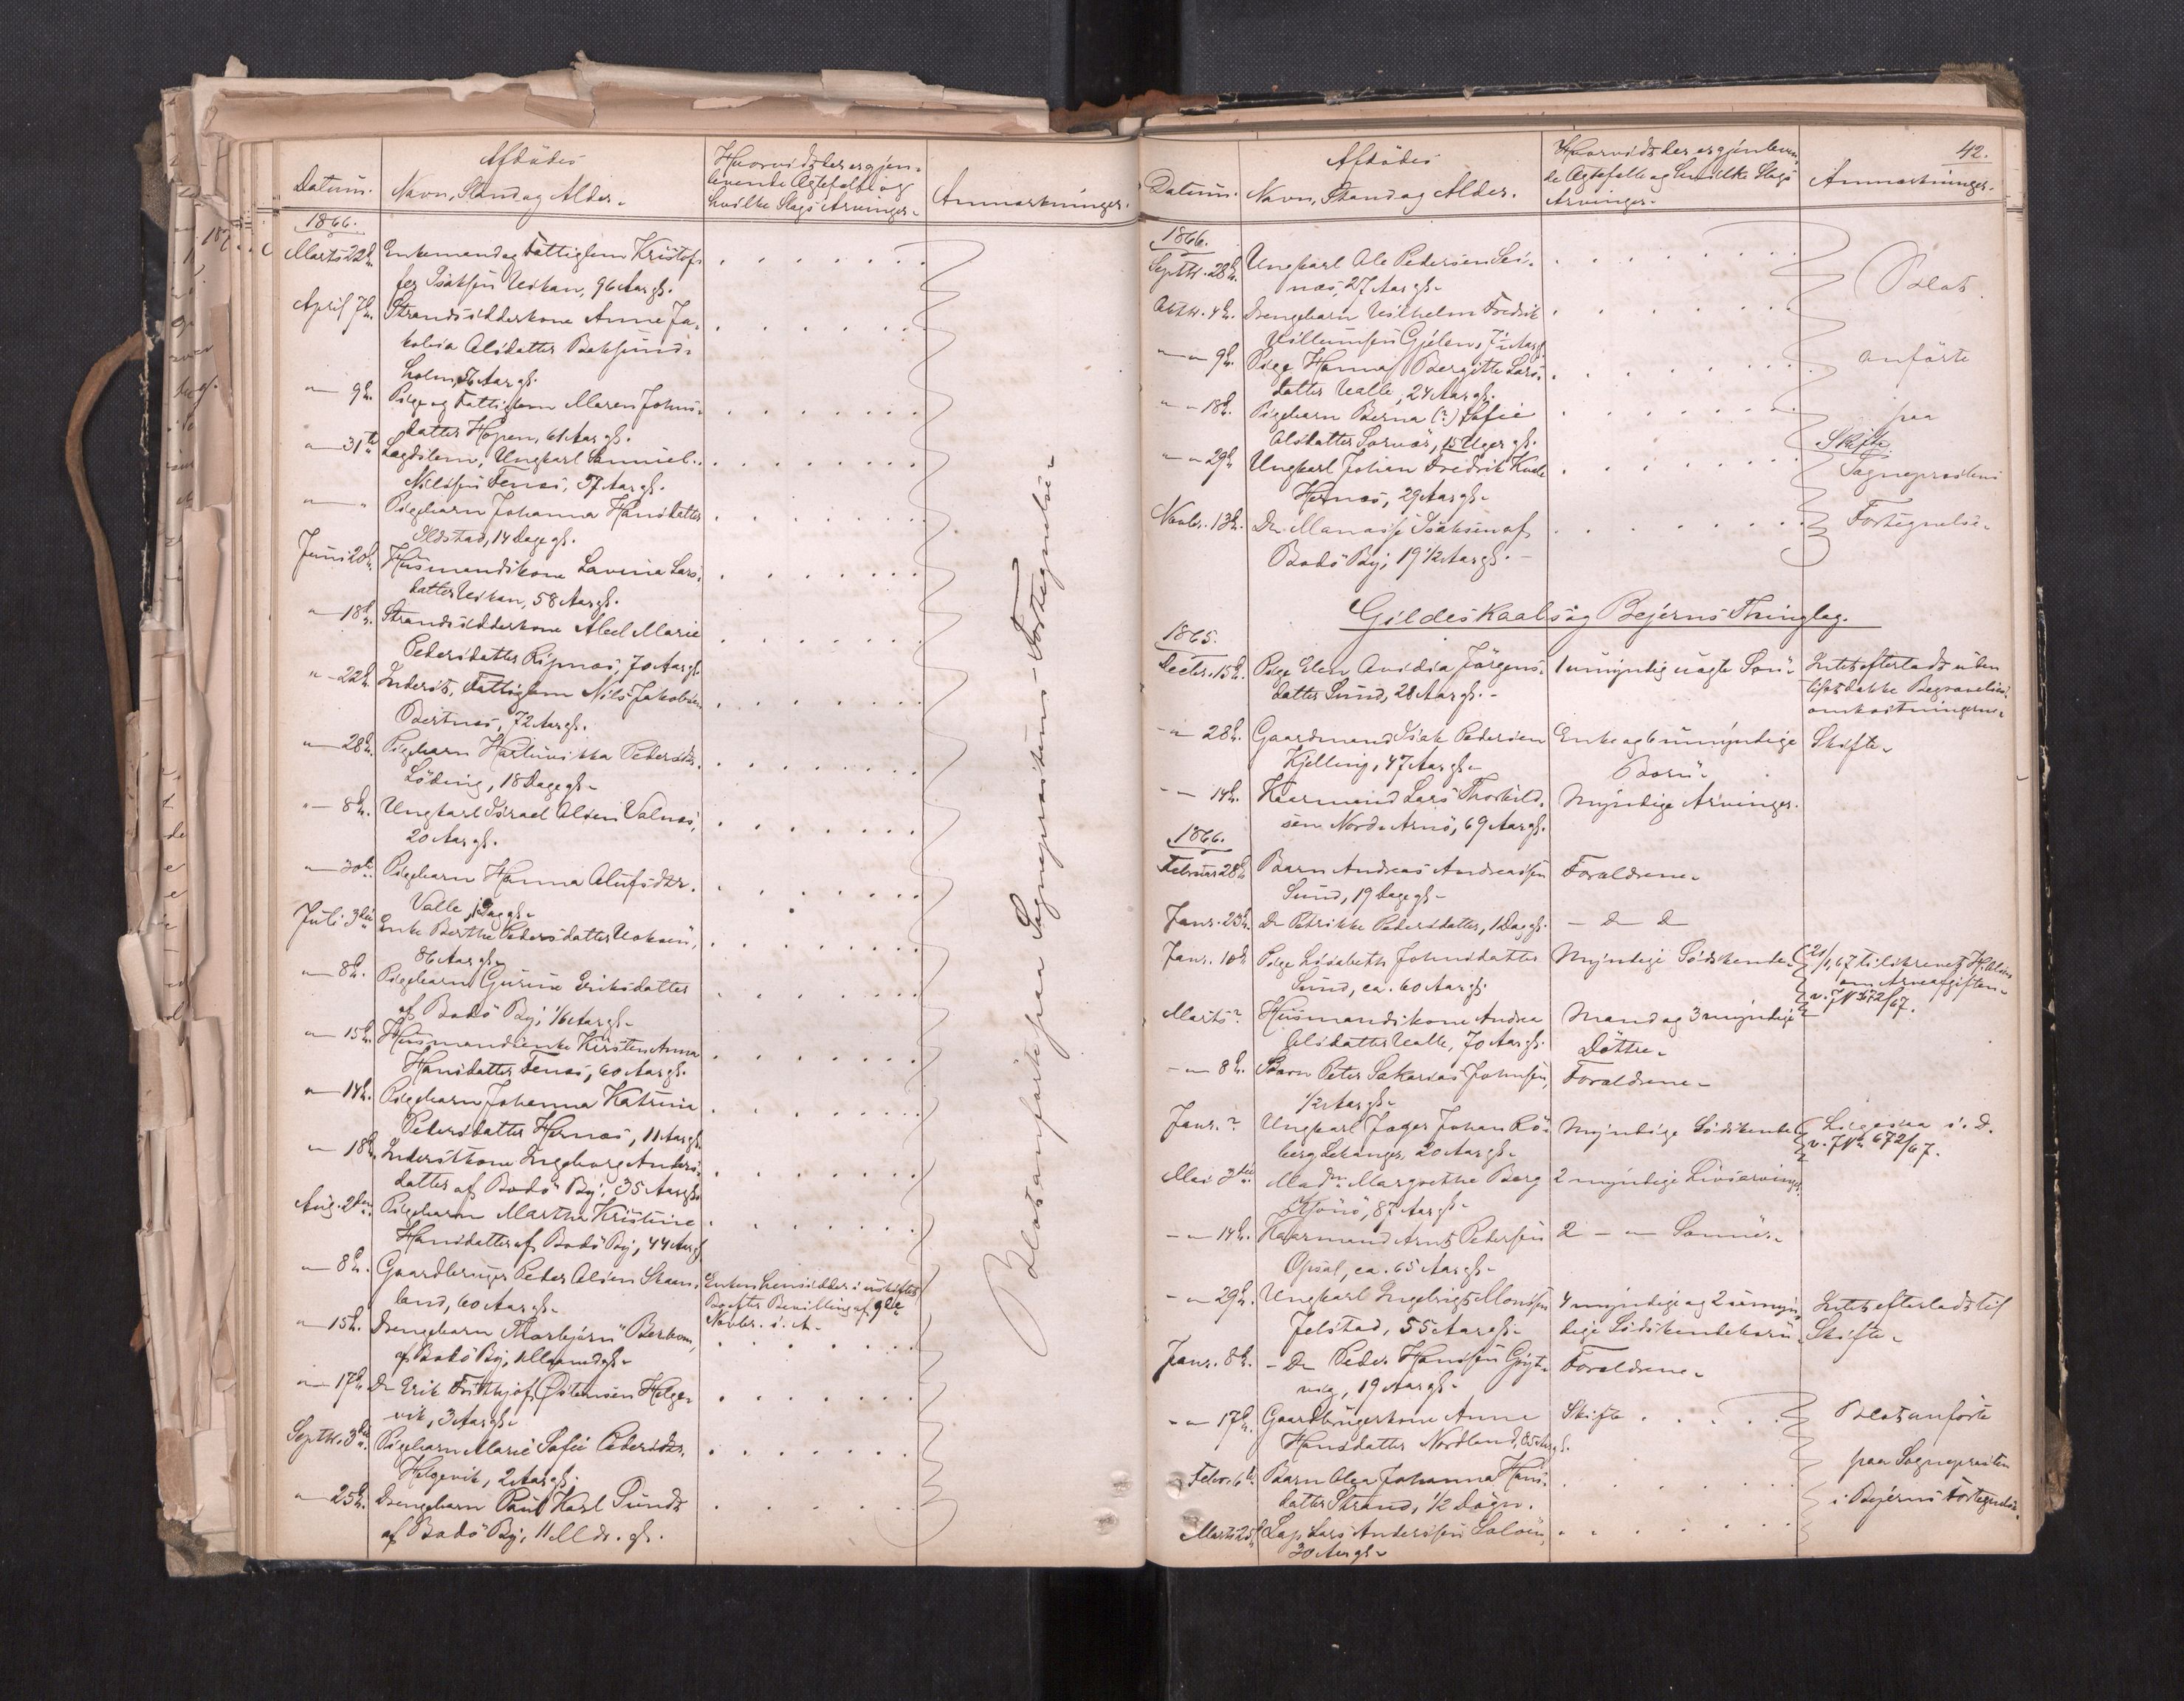 Datum.
Afdødes
Navn, Stand og Alder.
Hvorvidt der er gjen-
levende Ægtefælle og
hvilke Slags Arvinger.
Anmærkninger.
1866.
Marts 22de
Enkemand og Fattiglem Kristof-
fer Isaksen Seivaag, 96 Aar gl.
April 7de
Strandsidderkone Anne Ja-
kobia Olsdatter
holm, 56 Aar gl.
" 9de
Pige og Fattiglem Maren Johns-
datter Hopen, 61 Aar gl.
" 31te
Lægdslem, Ungkarl Samuel
Nilssen Fenes, 57 Aar gl.
" "
Pigebarn Johanna Hansdatter
Ildstad, 14 Dage gl.
Juni 20de
Husmandskone Lavina Lars-
datter, 58 Aar gl.
" 18de
Strandsidderkone Abel Marie
Pedersdatter, 70 Aar gl.
" 22de
Inderst, Fattiglem Nils Jakobsen
Bertnes, 72 Aar gl.
" 28de
Pigebarn Hartvikka Pedersdtr.
Løding, 18 Dage gl.
" 8de
Ungkarl Israel Olsen Valnes,
20 Aar gl.
" 30te
Pigebarn Hanna Olufsdtr.
Valle, 1 Dag gl.
Juli 3die
Enke Berthe Pedersdatter
86 Aar gl.
" 8de
Pigebarn Gurine Eriksdatter
af Bodø By, 1/6 Aar gl.
" 15de
Husmandsenke Kirsten Anna
Hansdatter Fenes, 60 Aar gl.
" 14de
Pigebarn Johanna Katrina
Pedersdatter Hernes, 11 Aar gl.
" 18de
Inderstkone Ingeborg Anders-
datter af Bodø By, 35 Aar gl.
Aug. 2den
Pigebarn Martha Kristine
Hansdatter af Bodø By, 44 Aar gl.
" 8de
Gaardbruger Peder Olsen Skaan-
land, 60 Aar gl.
Enken hensidder i uskiftet
Bo efter Bevilling af 9de
Novbr. s. A.
" 15de
Drengebarn Thorbjørn
af Bodø By, 1 Maaned gl.
" 17de
Do Erik Frithjof Østensen Helge-
vik, 3 Aar gl.
Septbr. 3die
Pigebarn Marie Sofie Pedersdtr.
Helgevik, 2 Aar gl.
" 25de
Drengebarn Paul Karl Sundt
af Bodø By, 11 Mdr. gl.
Blot anført paa Sogneprestens Fortegnelse
42.
Datum.
Afdødes
Navn, Stand og Alder.
Hvorvidt der er gjenleven-
de Ægtefælle og hvilke Slags
Arvinger.
Anmærkninger.
1866.
Septbr. 28de
Ungkarl Ole Pedersen Sei-
nes, 27 Aar gl.
Oktbr. 4de
Drengebarn Vilhelm Fredrik
Villumsen Gjelen, 7 1/2 Aar gl.
" " 9de
Pige Hanna Bergitte Lars-
datter Valle, 24 Aar gl.
" " 18de
Pigebarn Berna (?) Sofie
Olsdatter, 15 Uger gl.
" " 29de
Ungkarl Johan Fredrik
Hernes, 29 Aar gl.
Novbr. 13de
Do Manasse Isaksen af
Bodø By, 19 1/2 Aar gl.
Blot
anførte
paa
Skifte
Sogneprestens
Fortegnelse.
Gildeskaals og Bejerns Thinglag.
1865.
Decbr. 15de
Pige Elen Avidia Jørgens-
datter Sund, 28 Aar gl.
1 umyndig uægte Søn.
Intet efterladt uden
til at dække Begravelses-
omkostningerne.
" 28de
Gaardmand Isak Pedersen
Kjelling, 47 Aar gl.
Enke og 6 umyndige
Børn.
Skifte.
" 14de
Kaarmand Lars Thorkild-
sen Nord-Arnø, 69 Aar gl.
Myndige Arvinger.
1866.
Februar 28de
Barn Andreas Andreassen
Sund, 19 Dage gl.
Forældrene.
Janr. 23de
Do Petrikke Pedersdatter, 1 Dag gl.
— d d
Janr. 10de
Pige Lisabeth Johnsdatter
Sund, ca. 60 Aar gl.
Myndige Södskende
21/1 67 tilskrevet
om Arveafgiften
v. J N 672/67.
Marts ?
Husmandskone Andrea
Olsdatter Valle, 70 Aar gl.
Mand og 3 myndige
Døttre.
" 8de
Barn Peter Sakarias Johnsen,
1/2 Aar gl.
Forældrene.
Janr. ?
Ungkarl Jæger Johan Rö-
berg, 20 Aar gl.
Myndige Södskende
Ligesaa s. D.
v. J N. 672/67.
Mai 3die
Madm Margrethe Berg
, 87 Aar gl.
2 myndige Livsarvinger.
" 14de
Kaarmand Arnt Pedersen
Opsal, ca. 65 Aar gl.
2 — " Sønner.
" 29de
Ungkarl Ingebrigt Monsen
Jelstad, 55 Aar gl.
4 myndige og 2 umyn-
dige Södskendebørn
Intet efterladt til
Skifte.
Janr. 8de
- Do Peder Hansen
, 19 Aar gl.
Forældrene.
" 17de
Gaardbrugerkone Anne
Hansdatter Nordland, 85 Aar gl.
Skifte
Blot anførte
paa Sognepresten
i Bejerns Fortegnelse.
Febr. 6te
Barn Olea Johanna Hans-
datter Strand, 1/2 Døgn.
Marts 25de
Lap Lars Anderssen
30 Aar gl.